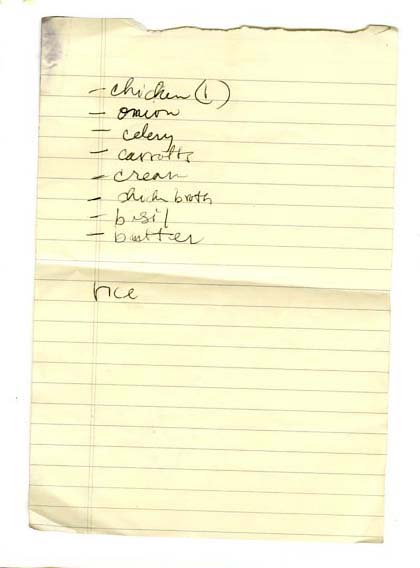 - chicken (1)
- onion
- celery
- carrotts
- cream
- chicken broth
- basil
- butter
rice